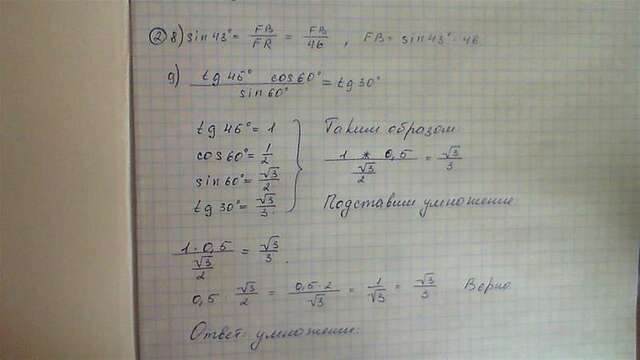 ② 8) sin 43° = FB/FR = FB/46 , FB = sin 43° · 46
9) (tg 46° cos 60°)/(sin 60°) = tg 30°
tg 46° = 1
cos 60° = 1/2
sin 60° = √3/2
tg 30° = √3/3
Таким образом
(1 * 0,5)/(√3/2) = √3/3
Подставим умножение
(1 · 0,5)/(√3/2) = √3/3.
0,5 · √3/2 = (0,5 · 2)/√3 = 1/√3 = √3/3 Верно.
Ответ: умножение.